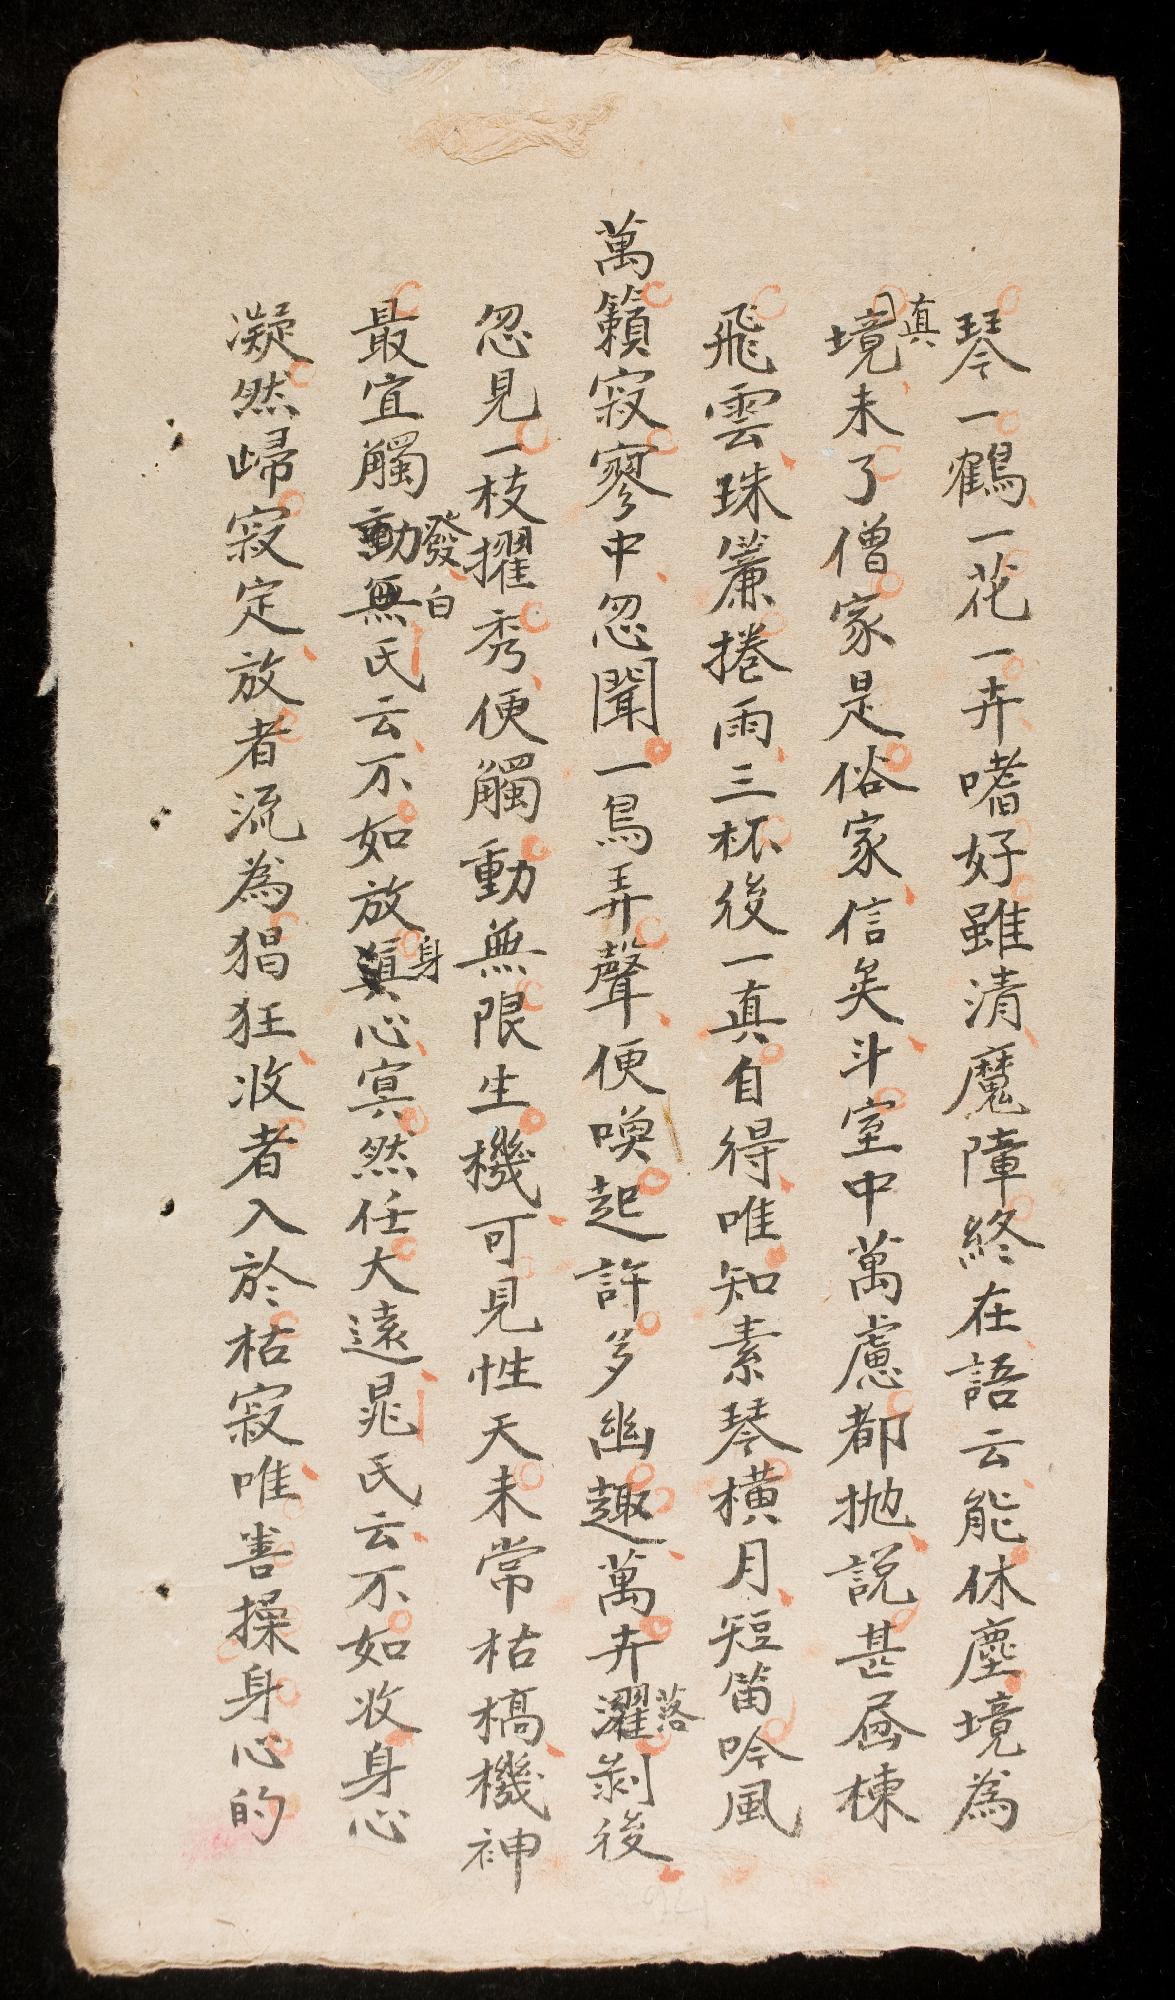 琴一鶴一花一卉嗜好雖清魔障終在語云能休塵境為
真
境未了僧家是俗家信矣斗室中萬慮都抛說甚畫棟
飛雲珠簾捲雨三杯後一真自得唯知素琴橫月短笛吟風
萬籟寂寥中忽聞一鳥弄聲便喚起許多幽趣萬卉濯剝後
落
忽見一枝擢秀便觸動無限生機可見性天未常枯槁機神
最宜觸動無氏云不如放真心冥然任大遠晁氏云不如收身心
發白身
凝然歸寂定放者流為猖狂收者入於枯寂唯善操身心的